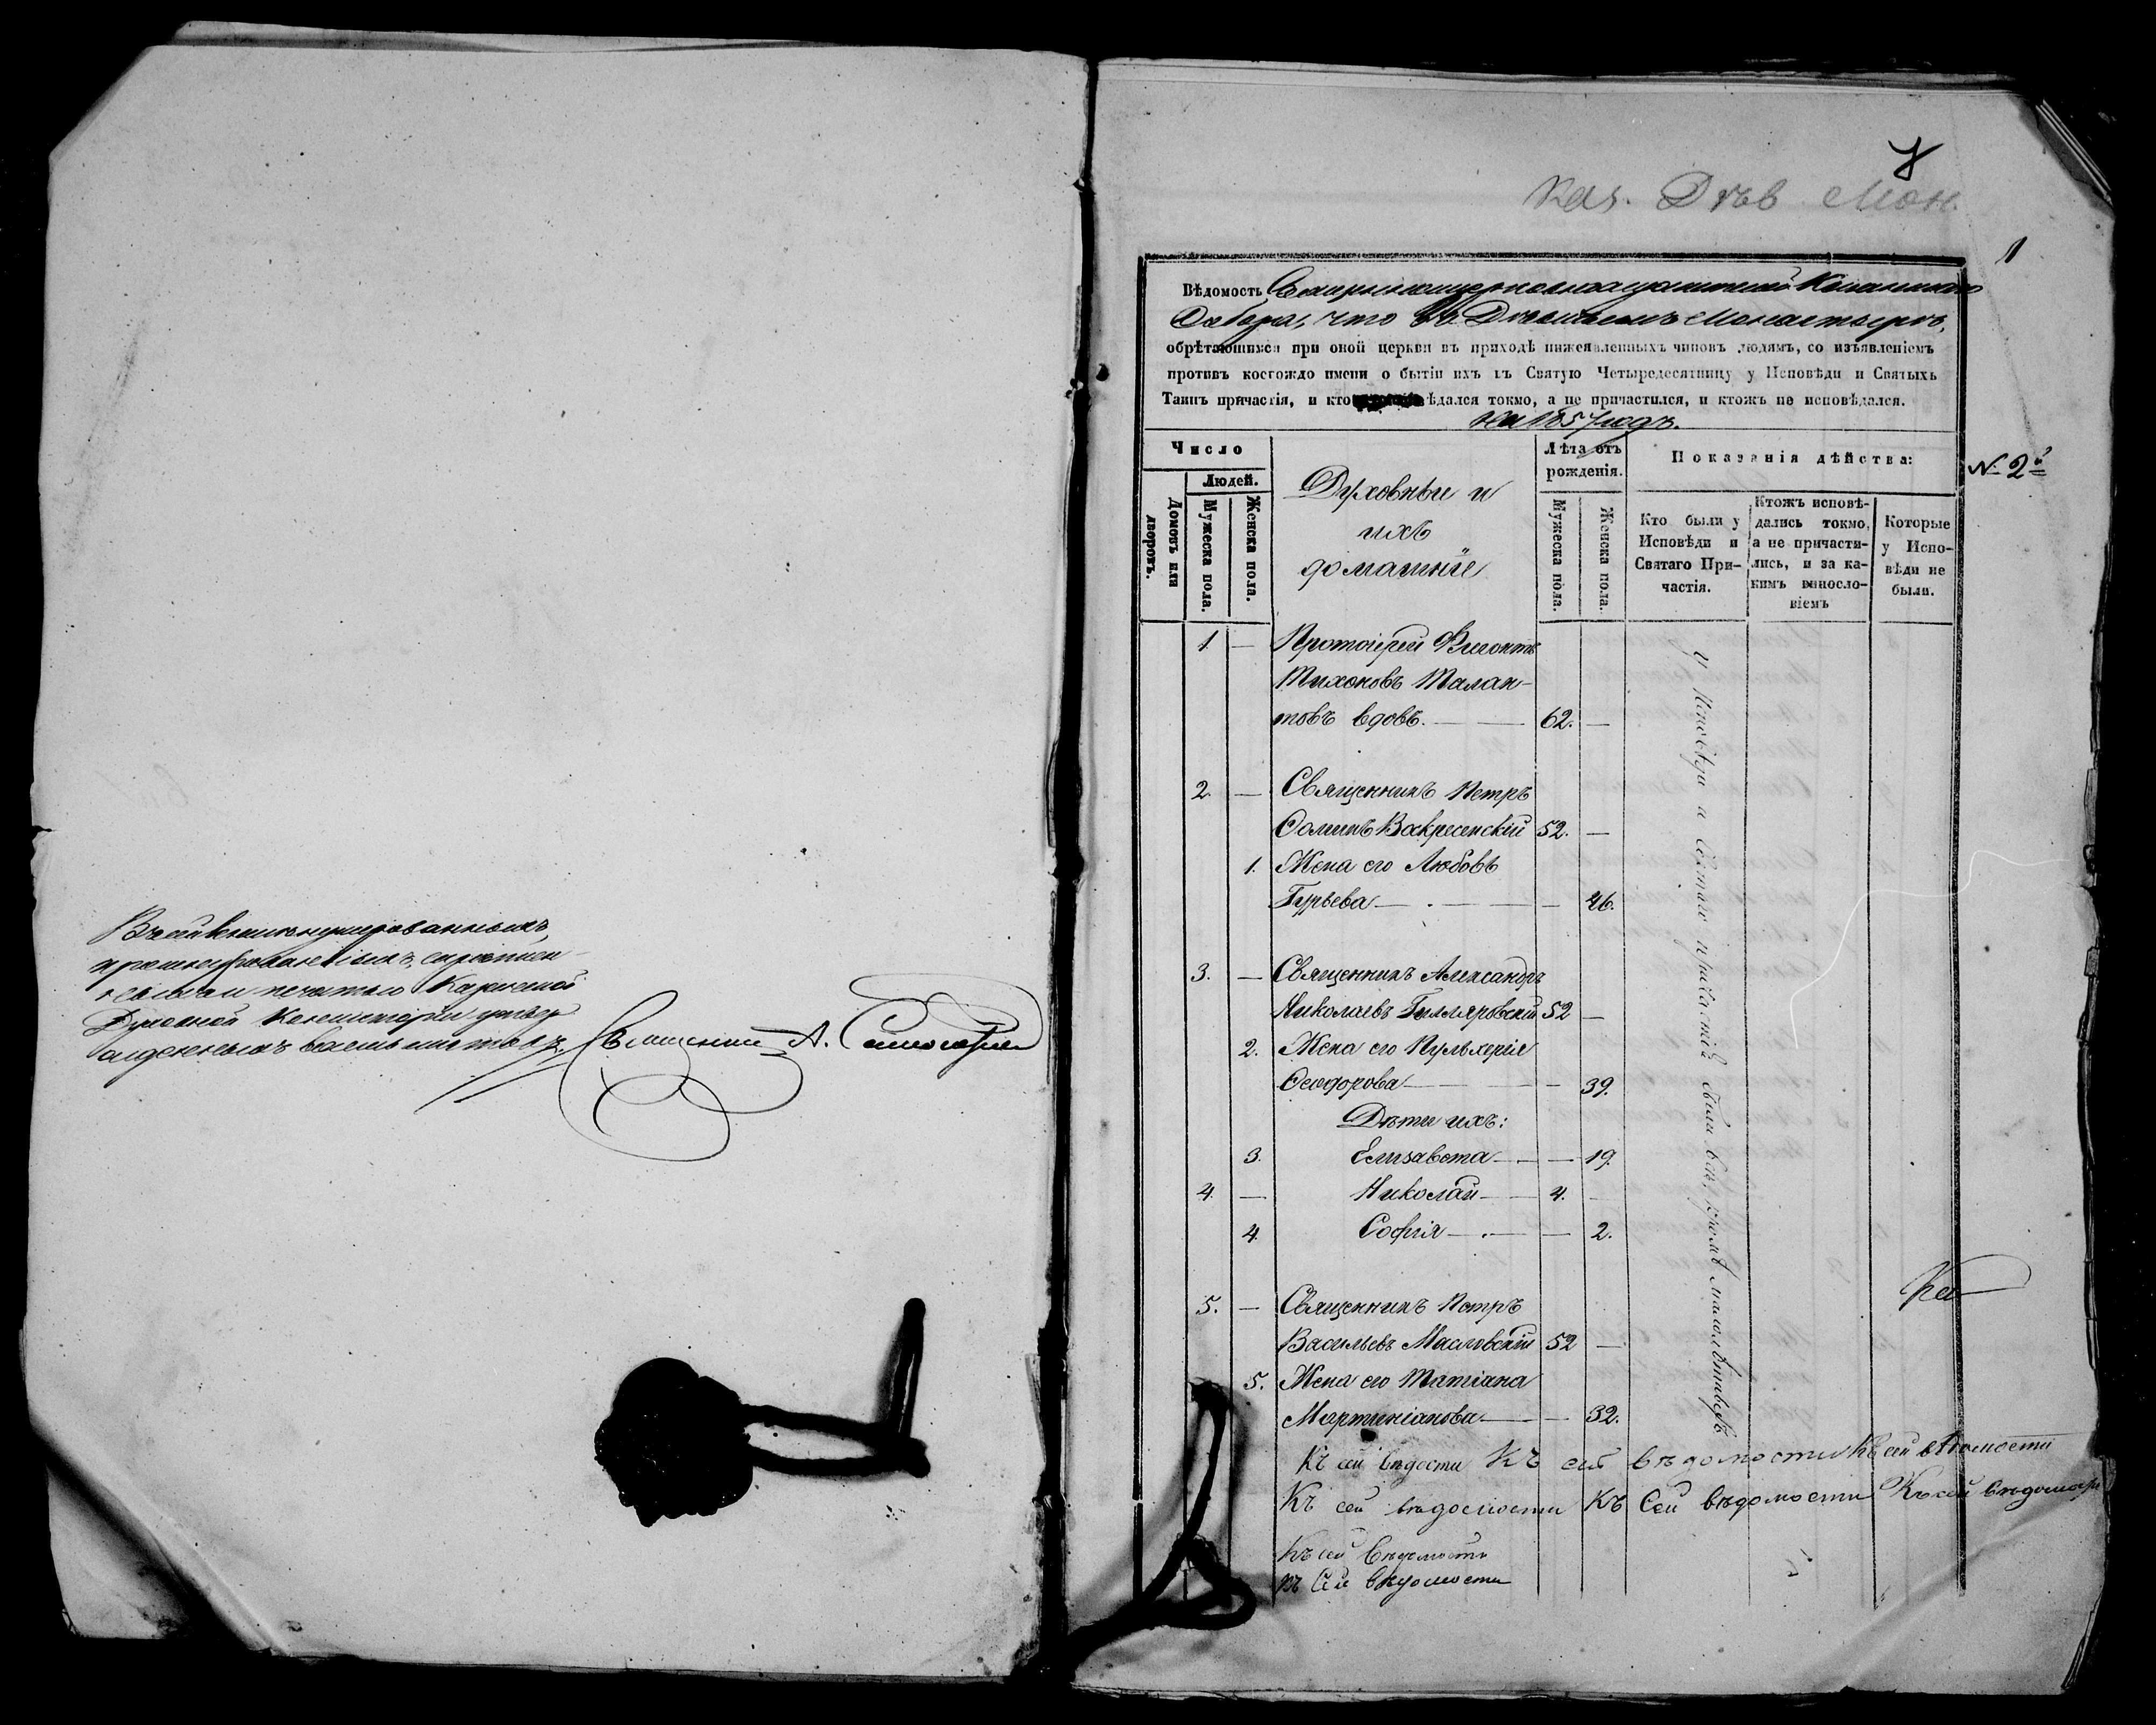 Въ сей книгѣ нумерованныхъ,
прошнурованныхъ, скрѣплен-
ныхъ и печатью Казанской
Духовной Консисторіи утвер-
жденныхъ листовъ. Священникъ А.
Каз. Дѣв. Мон.
1
Вѣдомость Казанскаго
Собора, что въ Дѣвичьемъ Монастырѣ,
обрѣтающихся при оной церкви въ приходѣ нижеявленныхъ чиновъ людямъ, со изъявленіемъ
противъ коегождо имени о бытіи ихъ въ Святую Четыредесятницу у Исповѣди и Святыхъ
Таинъ причастія, и кто ѣдался токмо, а не причастился, и ктожъ не исповѣдался.
на 1857 годъ.
Число
Людей.
Домовъ или дворовъ.
Мужеска пола.
Женска пола.
Духовные и
ихъ
домашніе
Лѣта отъ
рожденія.
Мужеска пола.
Женска пола.
Показанія дѣйства:
Кто были у
Исповѣди и
Святаго При-
частія.
Ктожъ исповѣ-
дались токмо,
а не причасти-
лись, и за ка-
кимъ винosло-
віемъ
Которые
у Испо-
вѣди не
были.
№ 2й
1 — Протоіерей Вигонтъ
Тихоновъ Талан-
товъ вдовъ. — 62. —
2. — Священникъ Петръ
Ѳоминъ Воскресенскій 52. —
1. Жена его Любовь
Гурьева — — 46.
3. — Священникъ Александръ
Николаевъ Гиляровскій 52 —
2. Жена его Пульхерія
Ѳеодорова — — 39.
Дѣти ихъ:
3. Елизавета — — 19.
4. — Николай — 4. —
4. София — — 2.
5. — Священникъ Петръ
Васильевъ Масловскій 52 —
5. Жена его Татіана
Мартиніанова — — 32.
у Исповѣди и Святаго причастія были всѣ, кромѣ малолѣтныхъ
Къ сей вѣдости Къ сей вѣдомости Къ сей вѣдомости
Къ сей вѣдомости Къ Сей вѣдомости Къ сей вѣдомо
Къ сей вѣдомости
Къ Сей вѣдомости